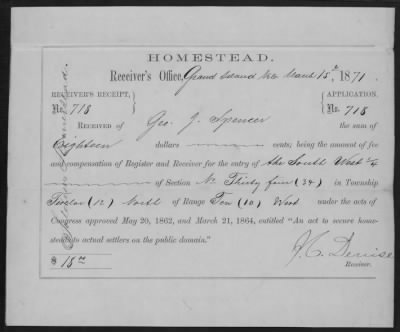 HOMESTEAD.
Receiver's Office, Grand Island Neb March 15th, 1871.
RECEIVER'S RECEIPT,
No. 718
APPLICATION.
No. 718
RECEIVED OF Geo. J. Spencer the sum of
Eighteen dollars cents; being the amount of fee
and compensation of Register and Receiver for the entry of the South West 1/4
of Section No Thirty four (34) in Township
Twelve (12) North of Range Ten (10) West under the acts of
Congress approved May 20, 1862, and March 21, 1864, entitled "An act to secure home-
steads to actual settlers on the public domain."
$ 18.00
Receiver.
Homestead.